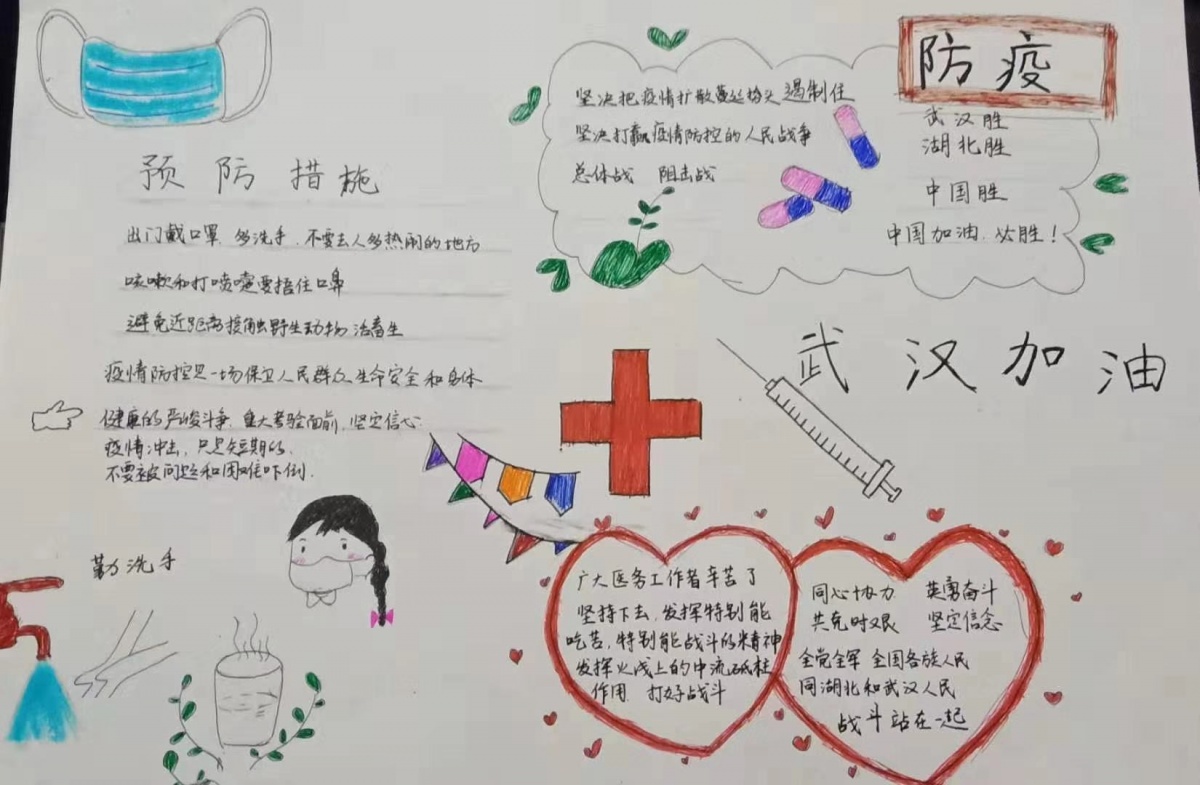 预防措施
出门戴口罩、多洗手、不要去人多热闹的地方
咳嗽和打喷嚏要捂住口鼻
避免近距离接触野生动物活畜生
疫情防控是一场保卫人民群众生命安全和身体
健康的严峻斗争,重大考验面前,坚定信心
疫情冲击,只是短期的,
不要被问题和困难吓倒.
勤洗手
防疫
坚决把疫情扩散蔓延势头遏制住
坚决打赢疫情防控的人民战争
总体战 阻击战
武汉胜
湖北胜
中国胜
中国加油,必胜!
武汉加油
广大医务工作者辛苦了
坚持下去,发挥特别能
吃苦,特别能战斗的精神
发挥火线上的中流砥柱
作用 打好战斗
同心协力 英勇奋斗
共克时艰 坚定信念
全党全军 全国各族人民
同湖北和武汉人民
战斗站在一起